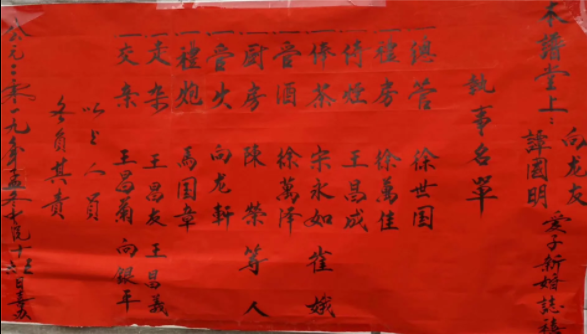 衣譜堂上：向龙友 譚國明 愛子新婚誌禧
執事名單
一總管 徐世国
一禮房 徐萬佳
一传烟 王昌成
一俸茶 宋永如 崔娥
一管酒 徐萬泽
一厨房 陳榮等人
一管火 向龙軒
一禮炮 馬国章
一走杂 王昌友 王昌義
一交亲 王昌菊 向銀年
以上人員
各負其責
公元二零一九年五